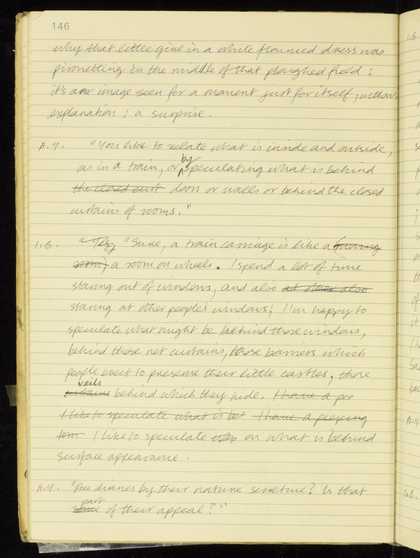 146
why that little girl in a white flounced dress was
pirouetting in the middle of that ploughed field:
it's an image seen for a moment just for itself, without
explanation: a surprise.
A.H. "You like to relate what is inside and outside,
as in a train, or by speculating what is behind
the closed curt door or walls or behind the closed
curtains of rooms."
I.B. "Yes, "Sure, a train carriage is like a moving
room, a room on wheels. I spend a lot of time
staring out of windows, and also at other also
staring at other people's windows; I'm happy to
speculate what might be behind those windows,
behind those net curtains, those barriers which
people erect to preserve their little castles, those
veils
curtains behind which they hide. I have a per
I like to speculate what is bet I have a peeping
tom I like to speculate on what is behind
surface appearance.
A.H. "Are diaries by their nature secretive? Is that
part
of their appeal?"